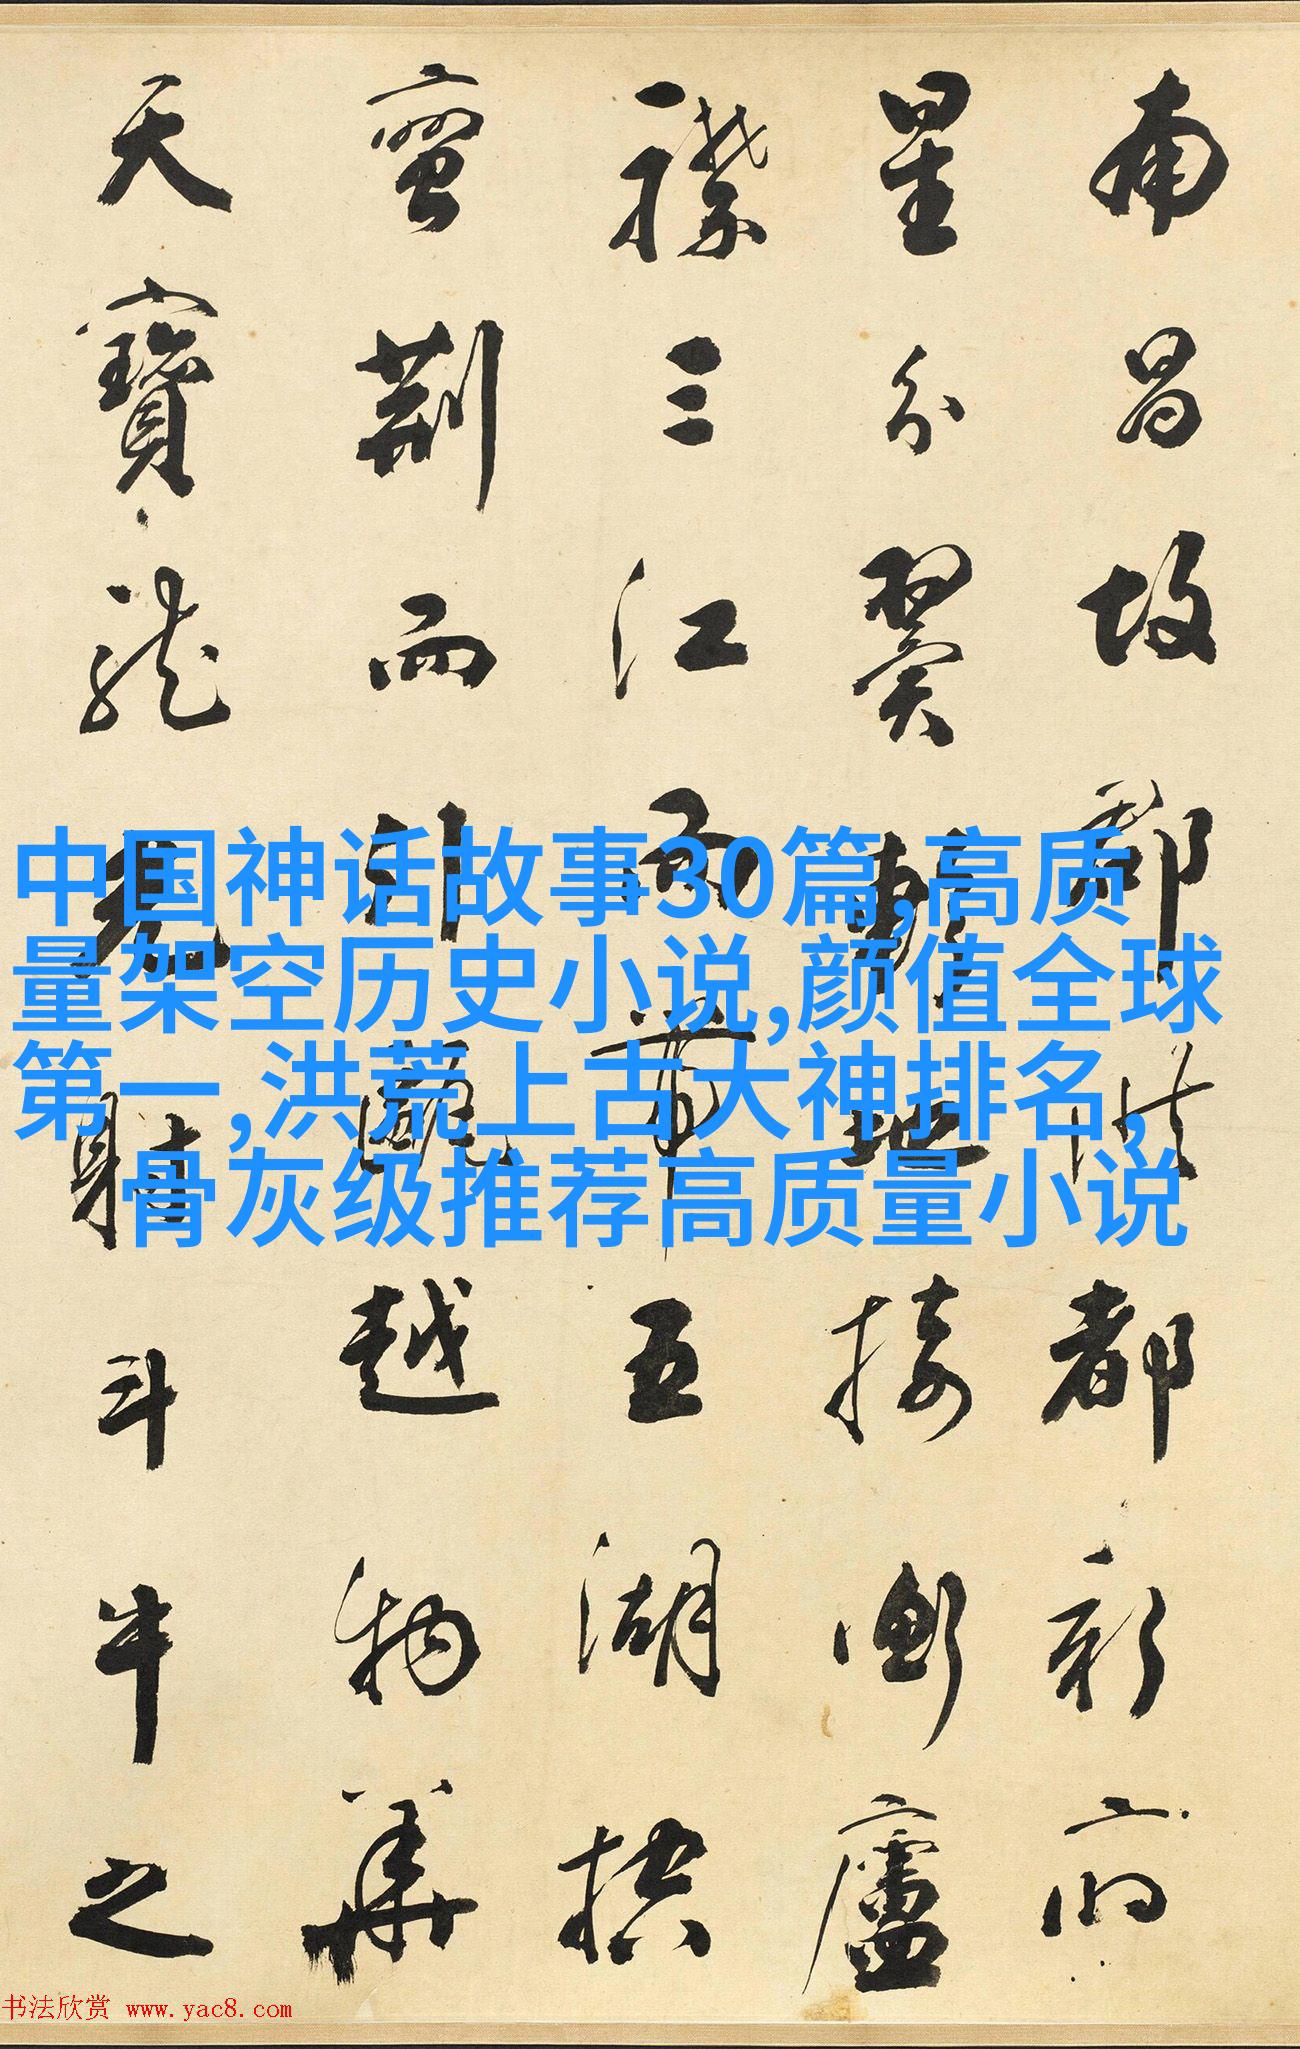 南昌故郡洪都新府
星分翼軫地接衡廬
襟三江而帶五湖控
蠻荊而引甌越物華
天寶龍光射斗牛之
中国神话故事30篇,高质
量架空历史小说,颜值全球
第一,洪荒上古大神排名,
骨灰级推荐高质量小说
书法欣赏 www.yac8.com